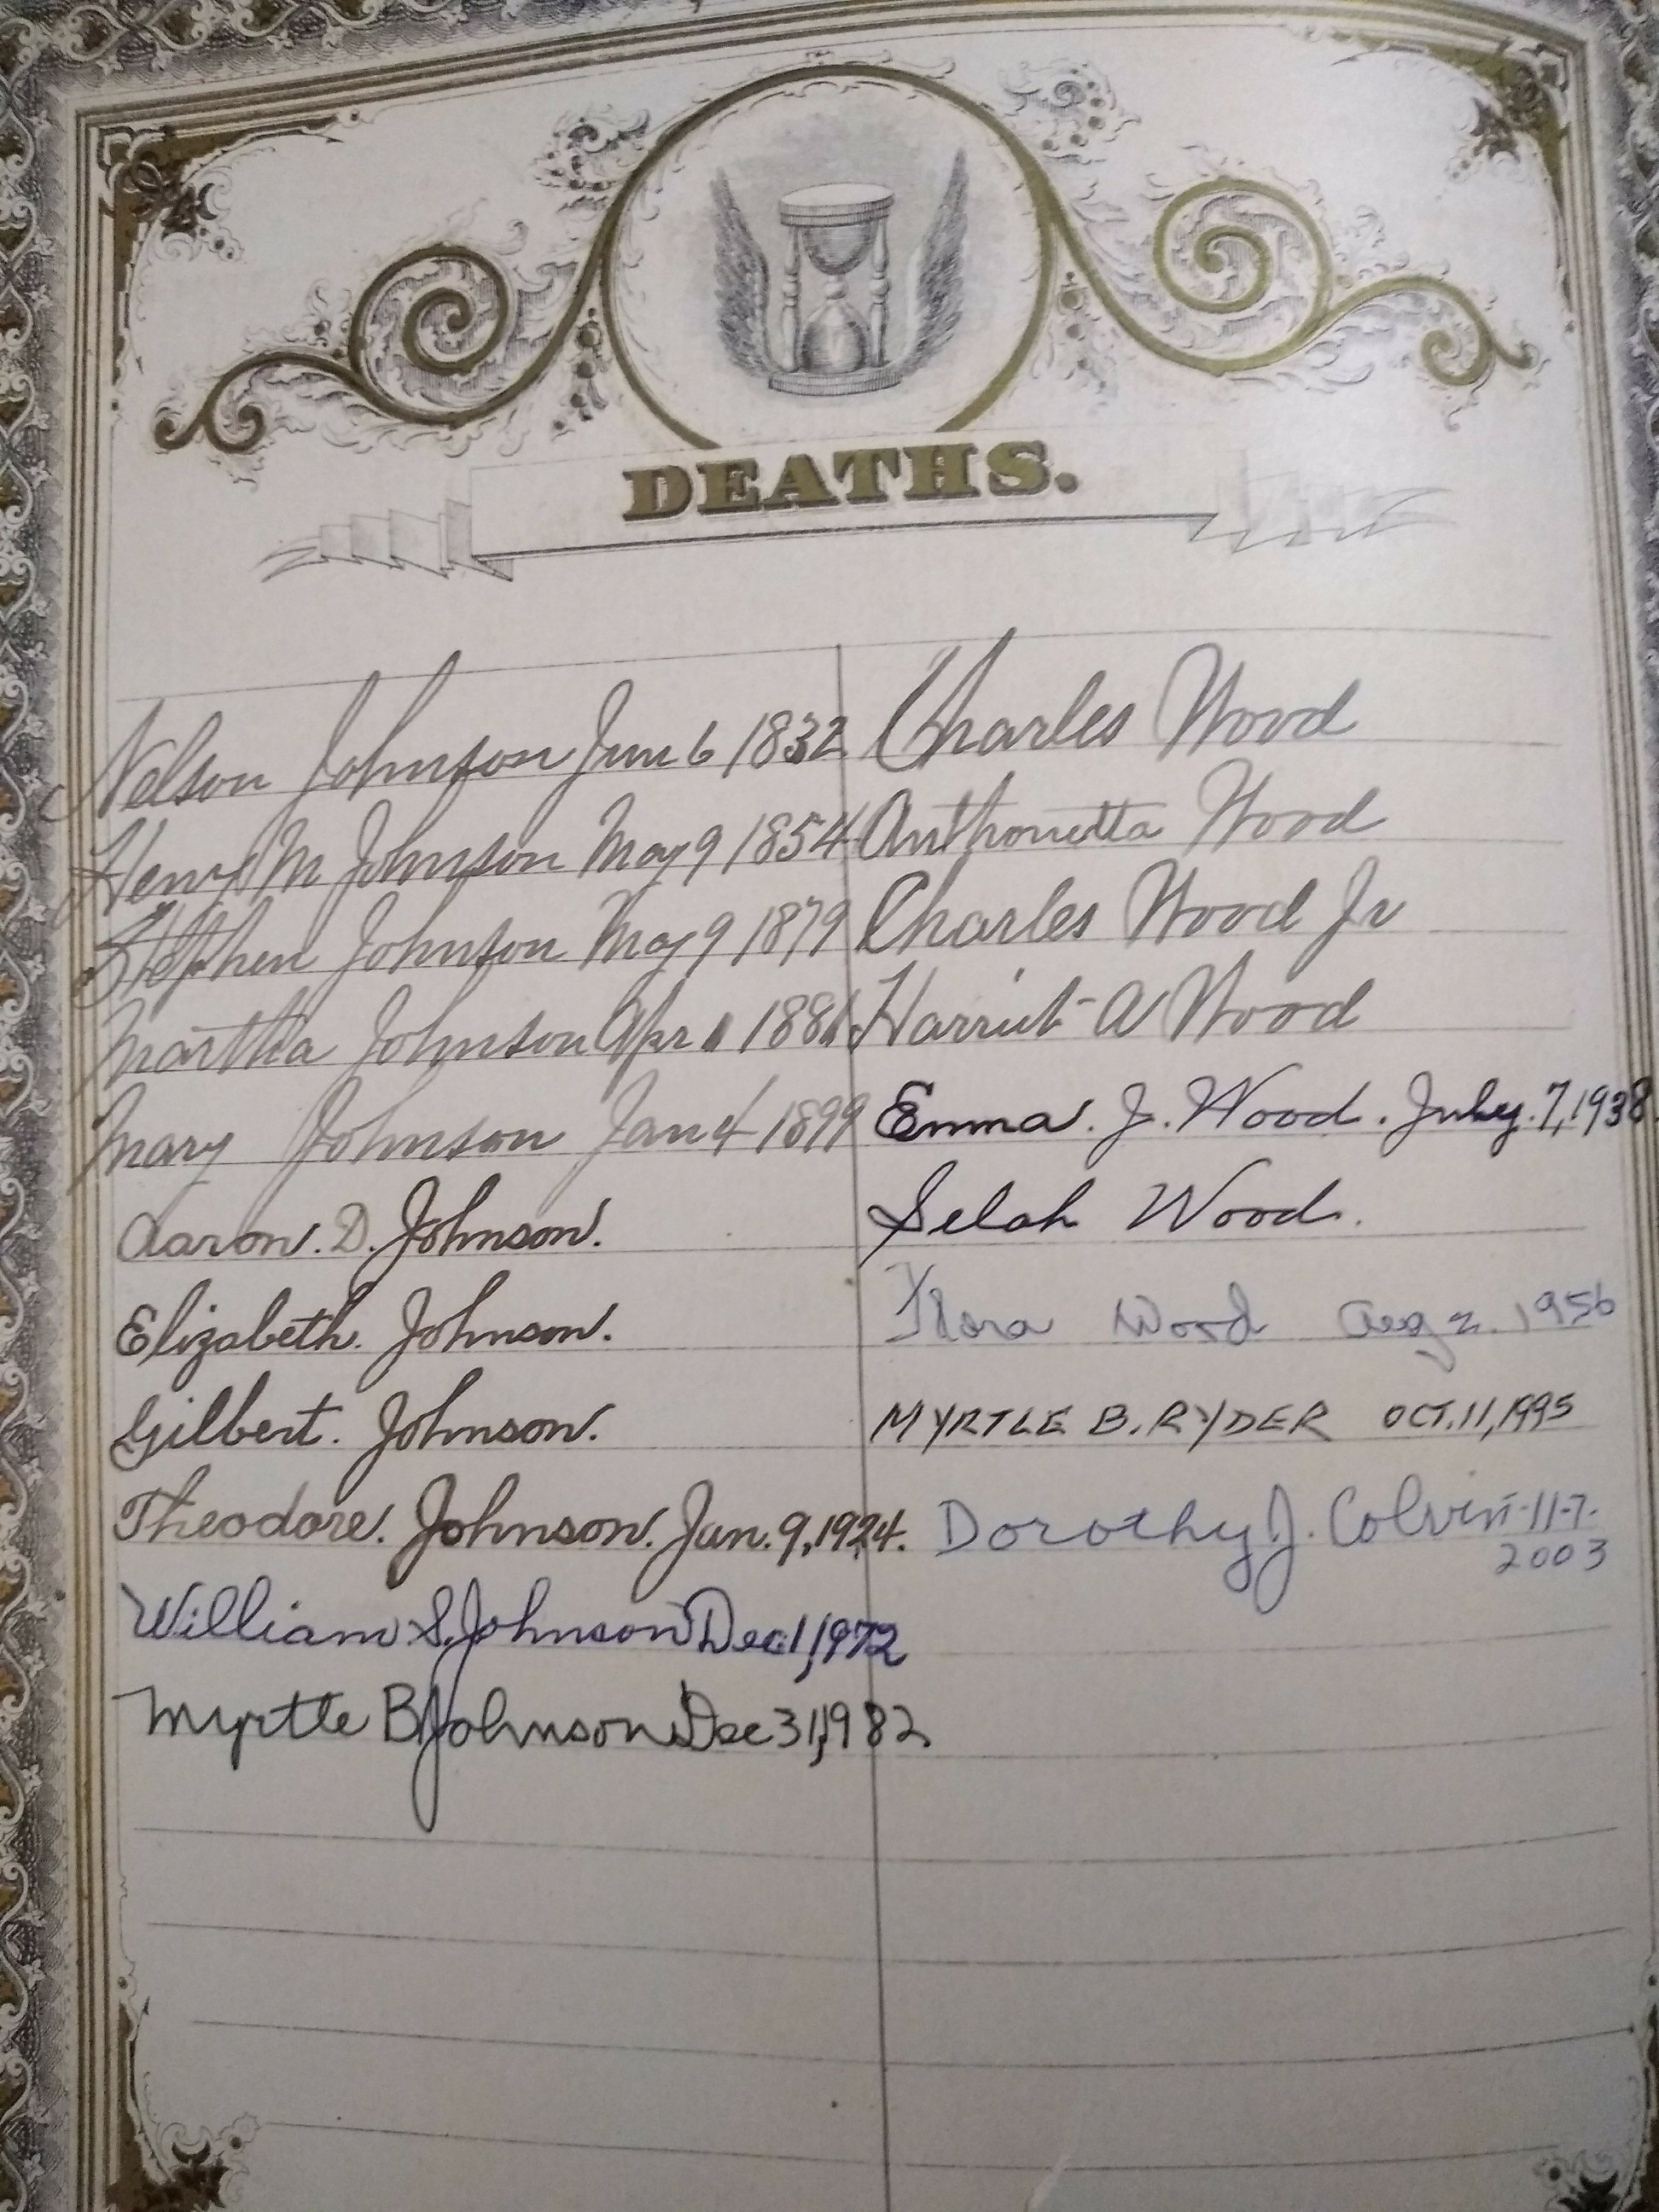 DEATHS.
Nelson Johnson Jun 6 1832
Henry M Johnson May 9 1854
Stephen Johnson May 9 1879
Martha Johnson Apr 1 1881
Mary Johnson Jan 4 1899
Aaron. D. Johnson.
Elizabeth. Johnson.
Gilbert. Johnson.
Theodore. Johnson. Jan. 9, 1924.
William S. Johnson Dec 1, 1972
Myrtle B Johnson Dec 31, 1982
Charles Wood
Anthonetta Wood
Charles Wood Jr
Harriet A Wood
Emma. J. Wood. July. 7, 1938.
Selah Wood.
Flora Wood Aug 2. 1956
MYRTLE B. RYDER OCT. 11, 1995
Dorothy J. Colvin-11-7-
2003